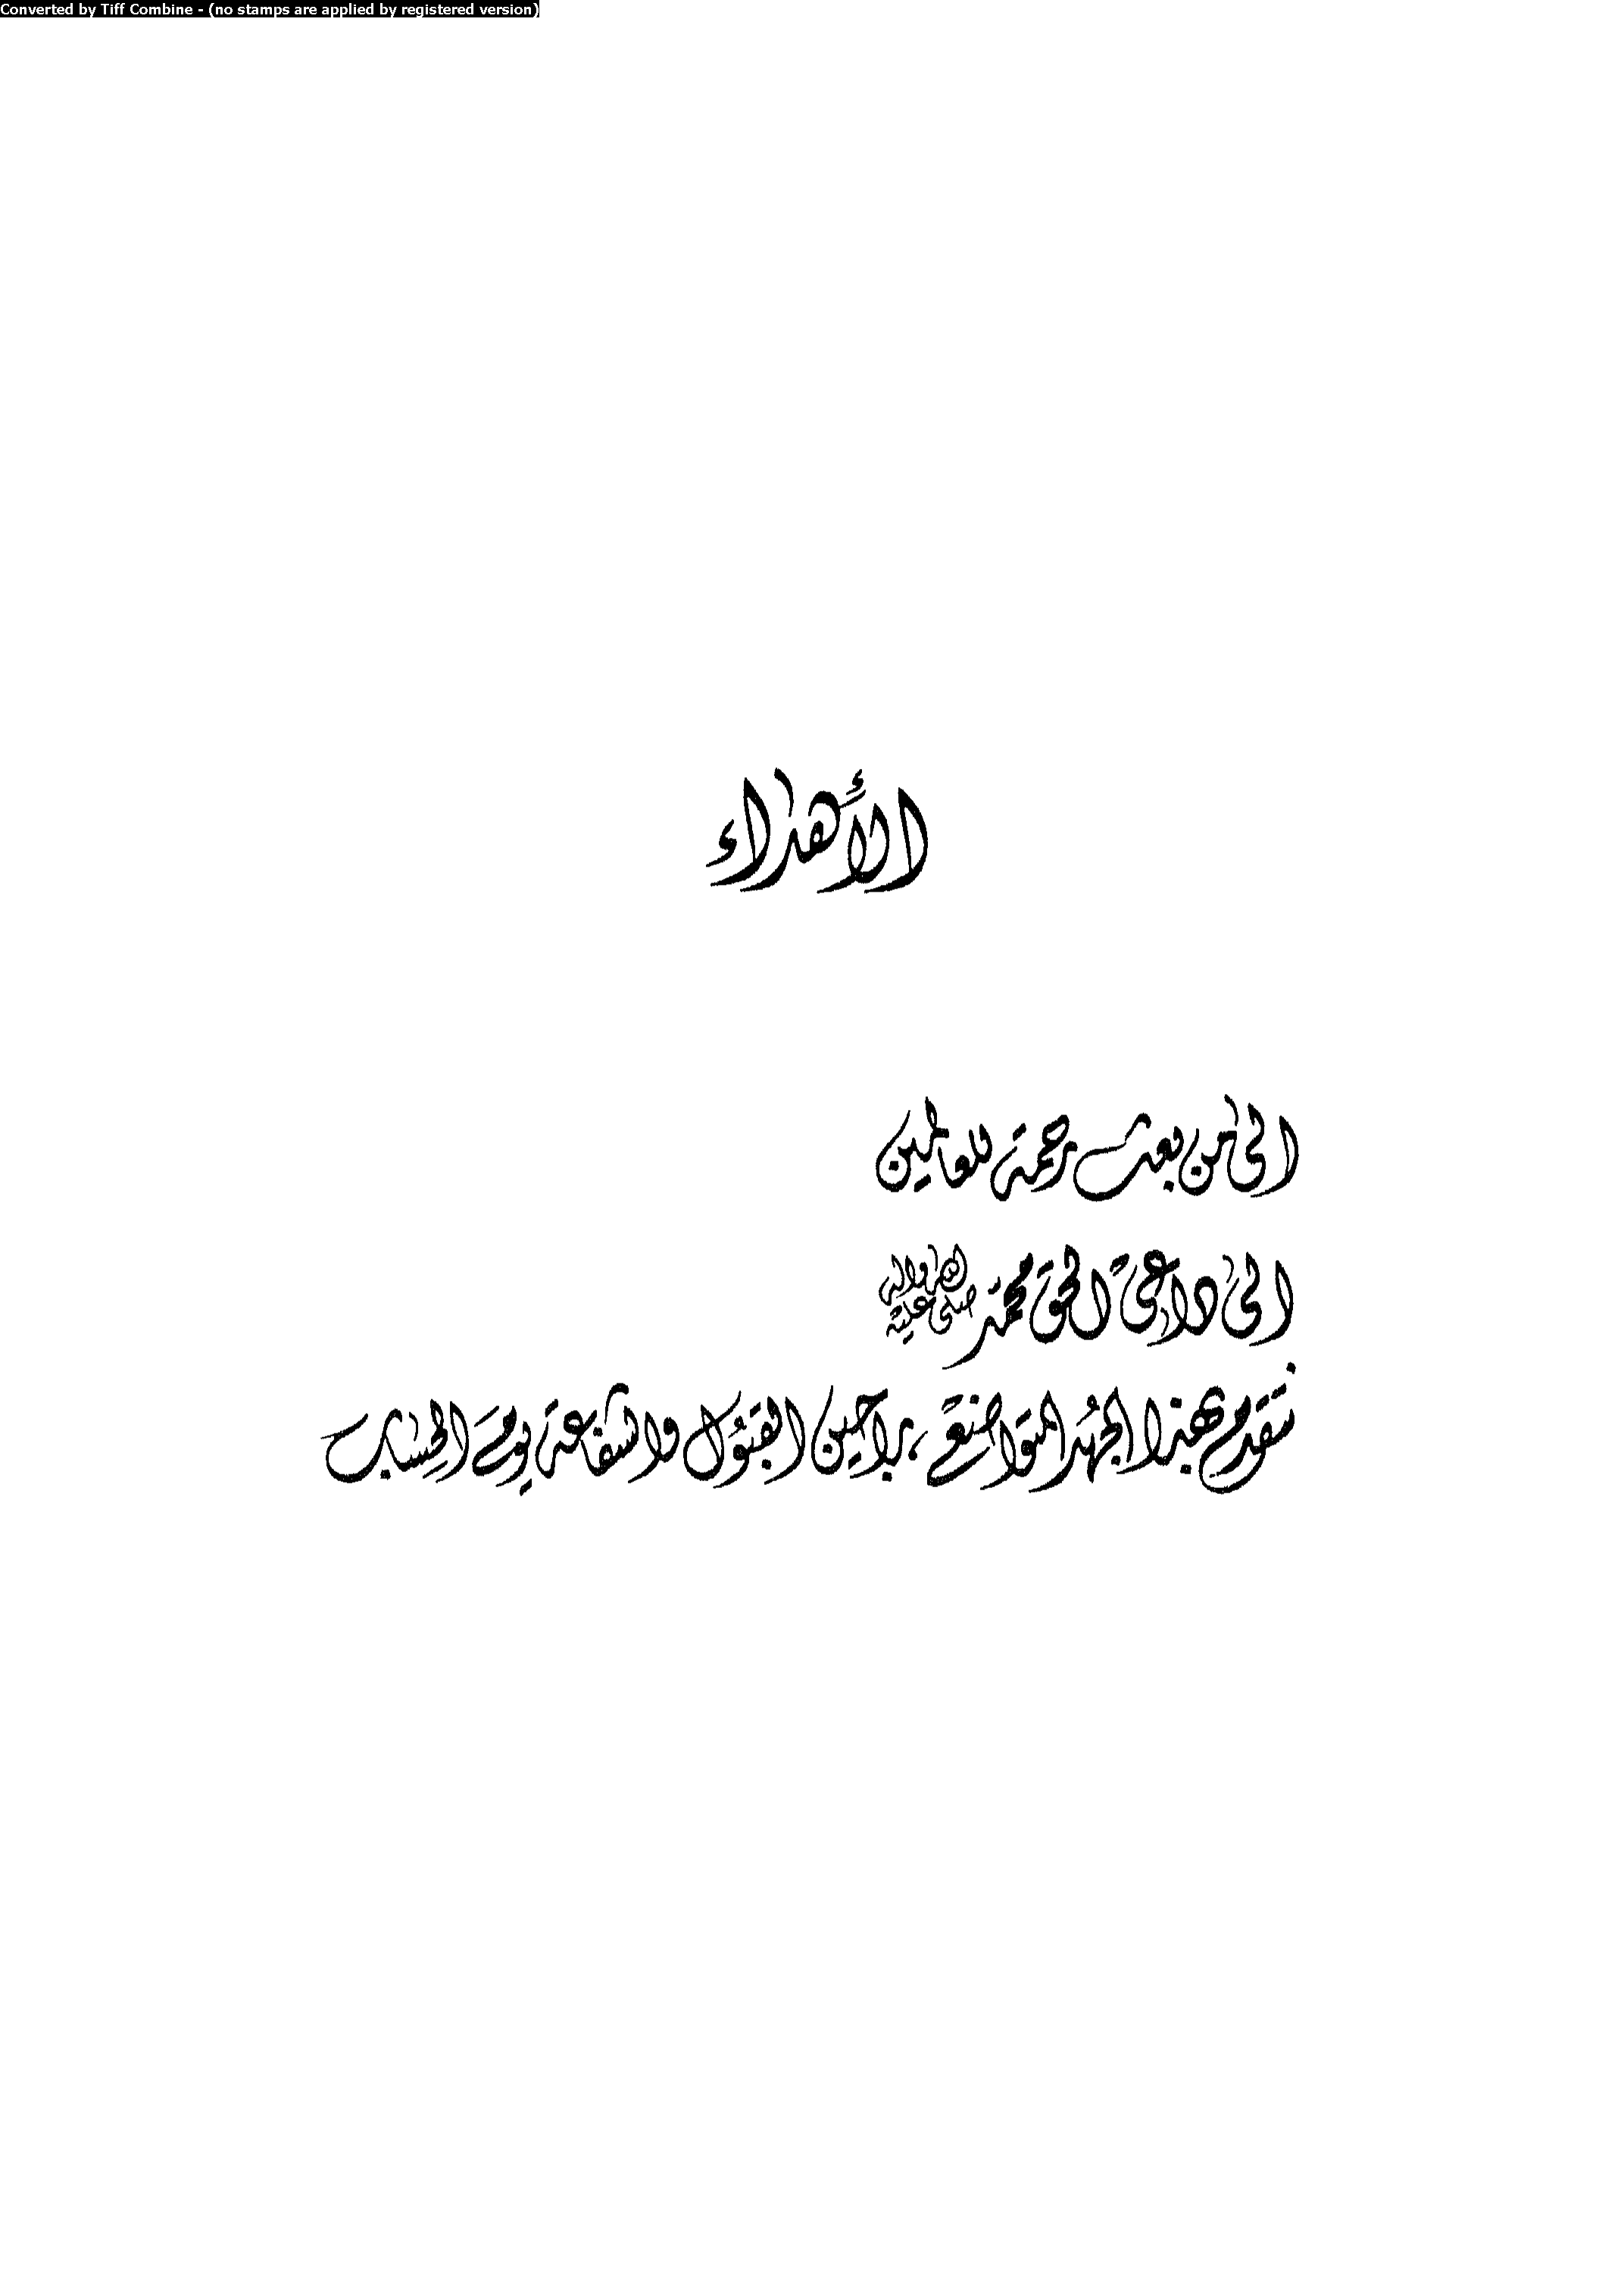 Converted by Tiff Combine - (no stamps are applied by registered version)
الأهداء
الى من بعث رحمة للعالمين
الى داعي الحق محمد صلى الله عليه واله
نتقدم بهذا الجهد المتواضع ، راجين القبول والشفاعة يوم الحساب